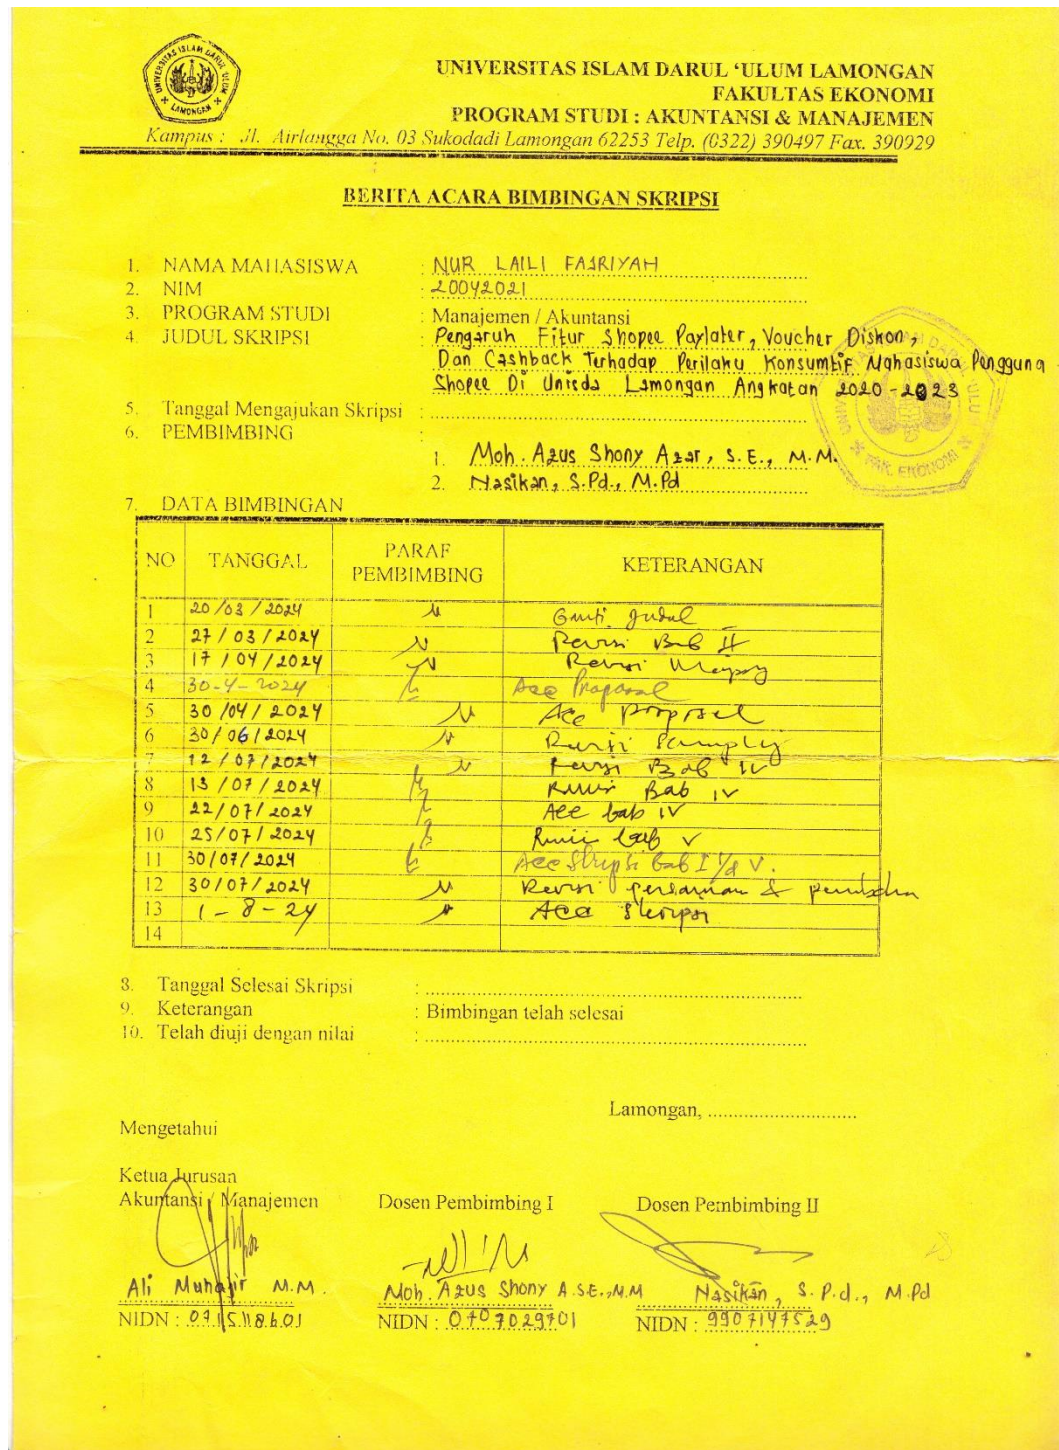 UNIVERSITAS ISLAM DARUL 'ULUM
LAMONGAN
UNIVERSITAS ISLAM DARUL 'ULUM LAMONGAN
FAKULTAS EKONOMI
PROGRAM STUDI : AKUNTANSI & MANAJEMEN
Kampus : Jl. Airlangga No. 03 Sukodadi Lamongan 62253 Telp. (0322) 390497 Fax. 390929
BERITA ACARA BIMBINGAN SKRIPSI
1. NAMA MAHASISWA : NUR LAILI FAJRIYAH
2. NIM : 20042021
3. PROGRAM STUDI : Manajemen / Akuntansi
4. JUDUL SKRIPSI : Pengaruh Fitur Shopee Paylater, Voucher Diskon,
Dan Cashback Terhadap Perilaku Konsumtif Mahasiswa Pengguna
Shopee Di Unisda Lamongan Angkatan 2020-2023
5. Tanggal Mengajukan Skripsi :
6. PEMBIMBING :
1. Moh. Agus Shony Azar, S.E., M.M.
2. Nasikan, S.Pd., M.Pd
FAK. EKONOMI
7. DATA BIMBINGAN
NO TANGGAL PARAF PEMBIMBING KETERANGAN
1 20/03/2024 Ganti Judul
2 27/03/2024 Revisi Bab II
3 17/04/2024 Revisi
4 30-4-2024 Acc Proposal
5 30/04/2024 Acc Proposal
6 30/06/2024 Revisi Sampling
7 12/07/2024 Revisi Bab IV
8 13/07/2024 Revisi Bab IV
9 22/07/2024 Acc bab IV
10 25/07/2024 Revisi bab V
11 30/07/2024 Acc Skripsi Bab I s/d V.
12 30/07/2024 Revisi &
13 1-8-24 Acc Skripsi
14
8. Tanggal Selesai Skripsi :
9. Keterangan : Bimbingan telah selesai
10. Telah diuji dengan nilai :
Lamongan,
Mengetahui
Ketua Jurusan
Akuntansi / Manajemen Dosen Pembimbing I Dosen Pembimbing II
Ali Muhajir M.M. Moh. Agus Shony A. SE., M.M Nasikan, S.Pd., M.Pd
NIDN : NIDN : 0707029701 NIDN : 9907147529